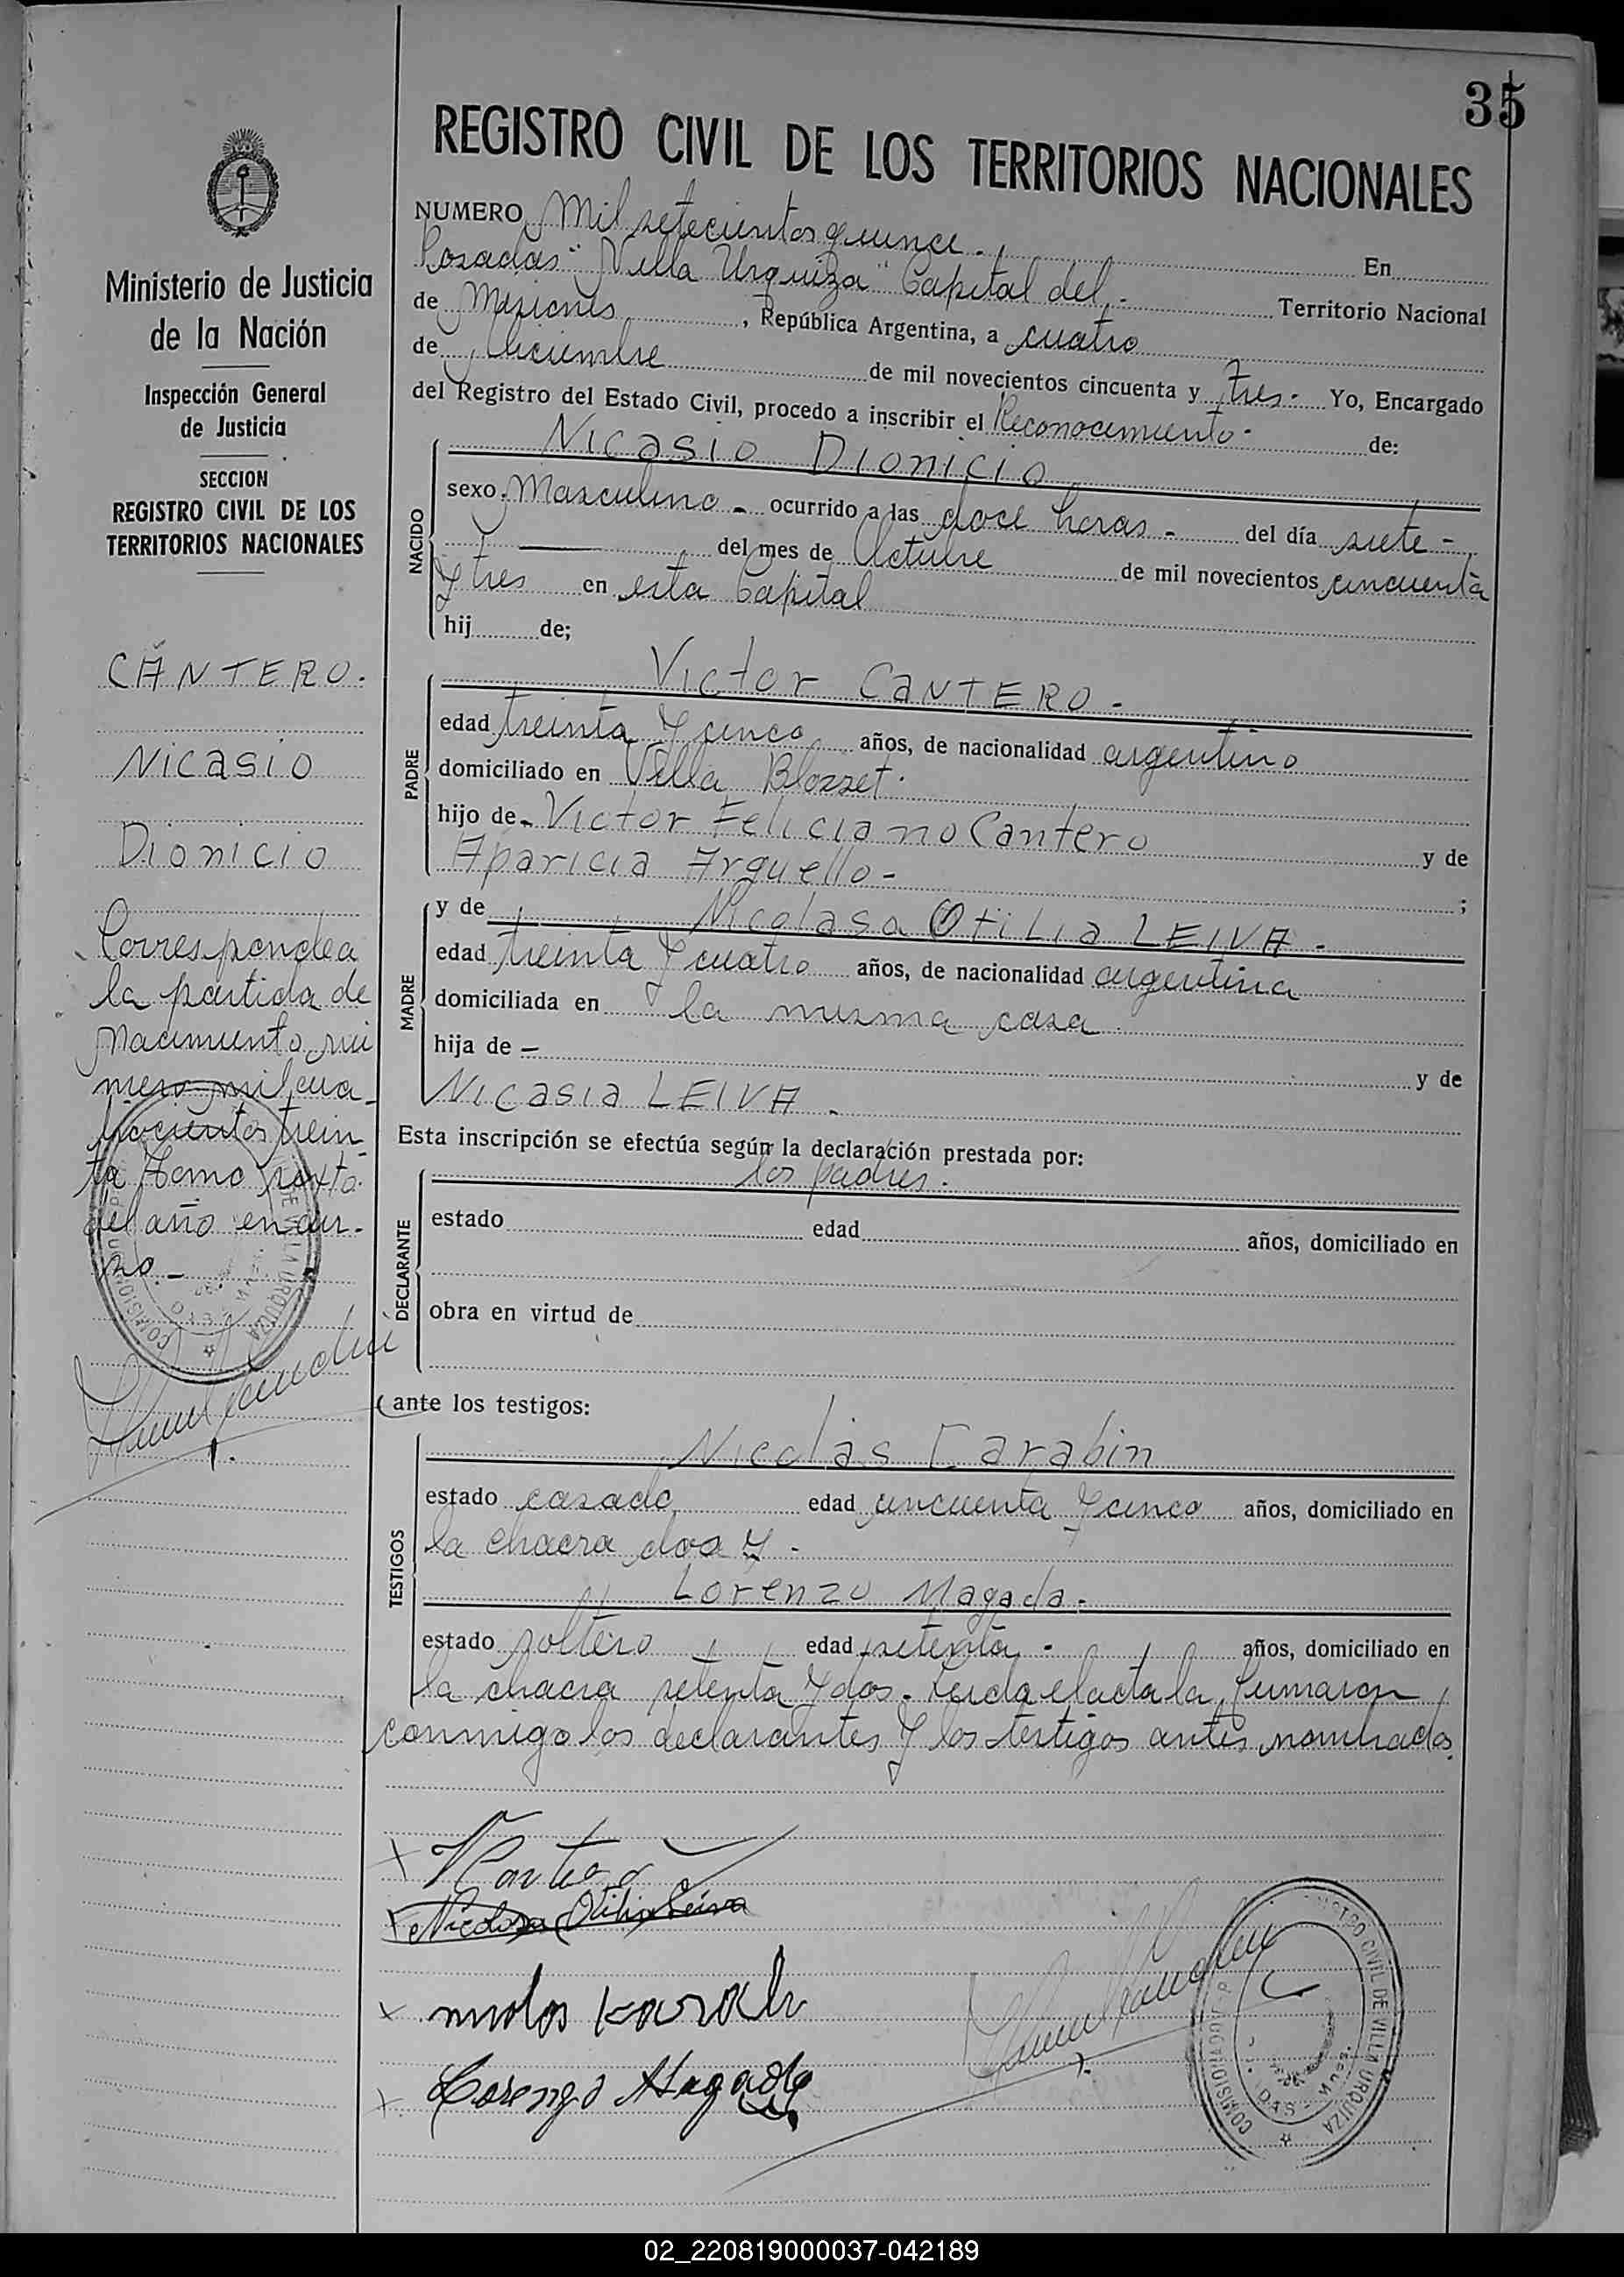 35
REGISTRO CIVIL DE LOS TERRITORIOS NACIONALES
Ministerio de Justicia
de la Nación
Inspección General
de Justicia
SECCION
REGISTRO CIVIL DE LOS
TERRITORIOS NACIONALES
CANTERO.
Nicasio
Dionicio
Corresponde a
la partida de
Nacimiento nú
mero mil cua_
trocientos trein
ta tomo sexto.
del año en cur-
so._
NUMERO Mil setecientos quince. En
Posadas "Villa Urquiza" Capital del.- Territorio Nacional
de Misiones, República Argentina, a cuatro
de diciembre de mil novecientos cincuenta y tres.- Yo, Encargado
del Registro del Estado Civil, procedo a inscribir el Reconocimiento- de:
NACIDO
Nicasio Dionicio
sexo Masculino - ocurrido a las doce horas - del día siete -
del mes de Octubre de mil novecientos cincuenta
y tres en esta Capital
hij de;
PADRE
Victor CANTERO.-
edad treinta y cinco años, de nacionalidad argentino
domiciliado en Villa Blosset.
hijo de Victor Feliciano Cantero y de
Aparicia Arguello- ;
MADRE
y de Nicolasa Otilia LEIVA.-
edad treinta y cuatro años, de nacionalidad argentina
domiciliada en la misma casa
hija de — y de
Nicasia LEIVA.
Esta inscripción se efectúa según la declaración prestada por:
DECLARANTE
los padres.
estado edad años, domiciliado en
obra en virtud de
ante los testigos:
TESTIGOS
Nicolás Carabin
estado casado edad cincuenta y cinco años, domiciliado en
la chacra dos y -
Lorenzo Magada.-
estado soltero edad setenta - años, domiciliado en
la chacra setenta y dos. Leida el acta la firmaron
conmigo los declarantes y los testigos antes nombrados.
Nicolasa Otilia Leiva
Lorenzo Magada
REGISTRO CIVIL DE VILLA URQUIZA
02_220819000037-042189